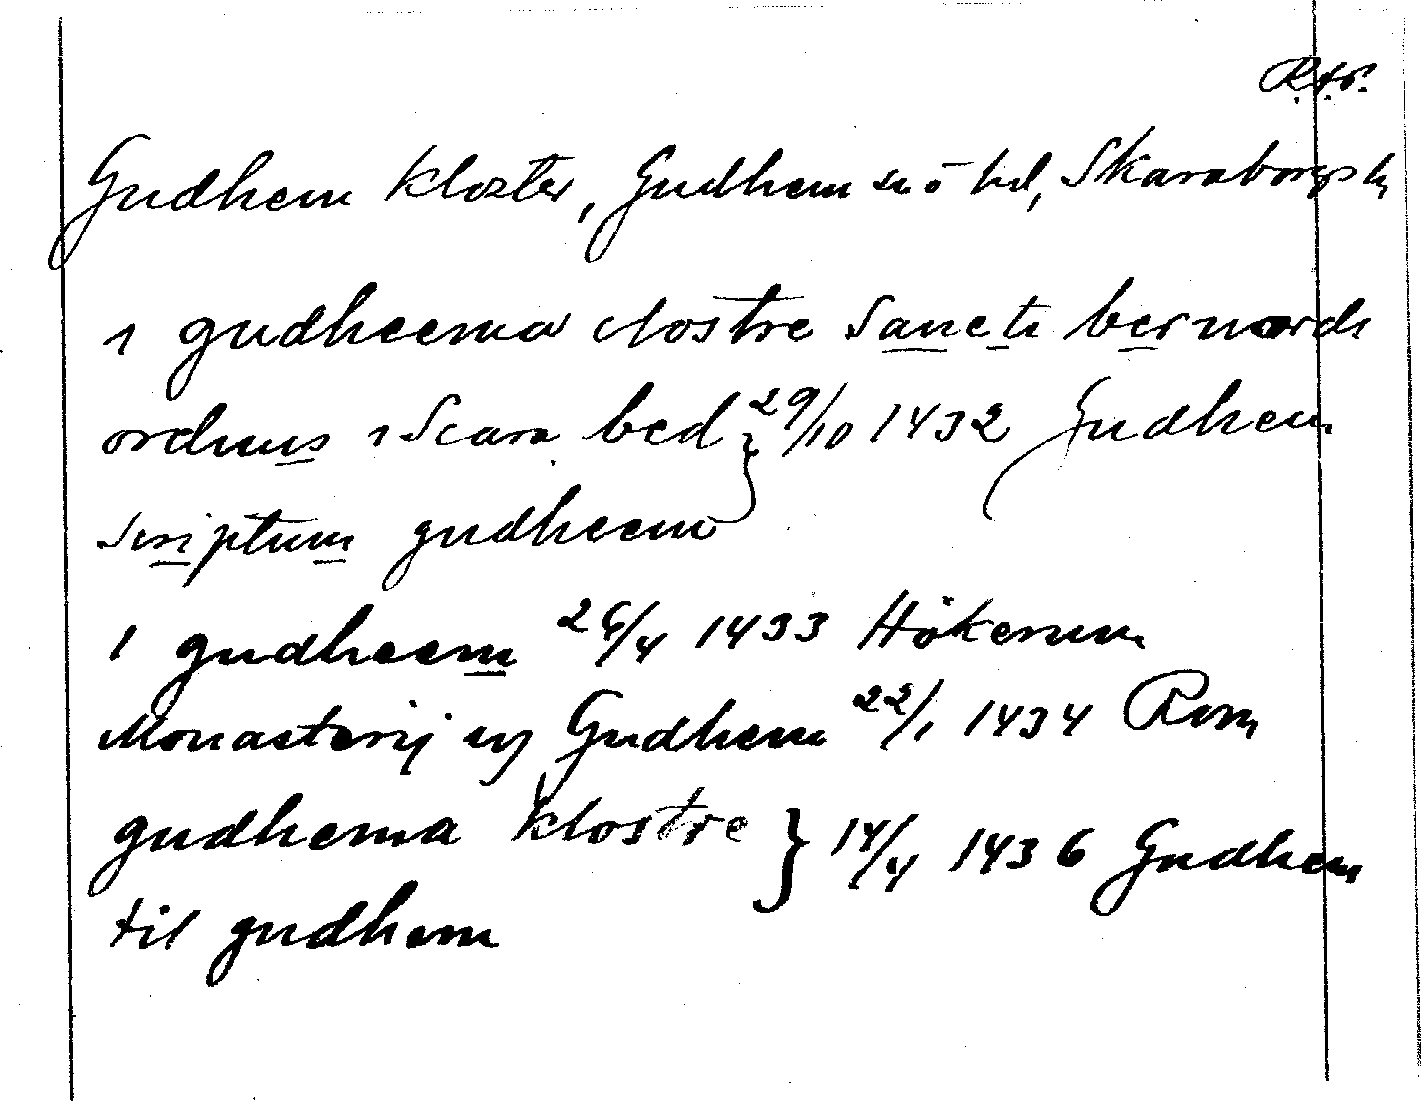 R.A.P.
Gudhem kloster, Gudhem sn o hd, Skaraborgs l.
i gudheema clostre Sancti bernardi
ordinis i Scara bed } 29/10 1432 Gudhem
Scriptum gudheem
I gudheem 26/4 1433 Hökerum
Monasterij in Gudhem 22/1 1434 Rom
gudhema klostre } 14/4 1436 Gudhem
til gudhem